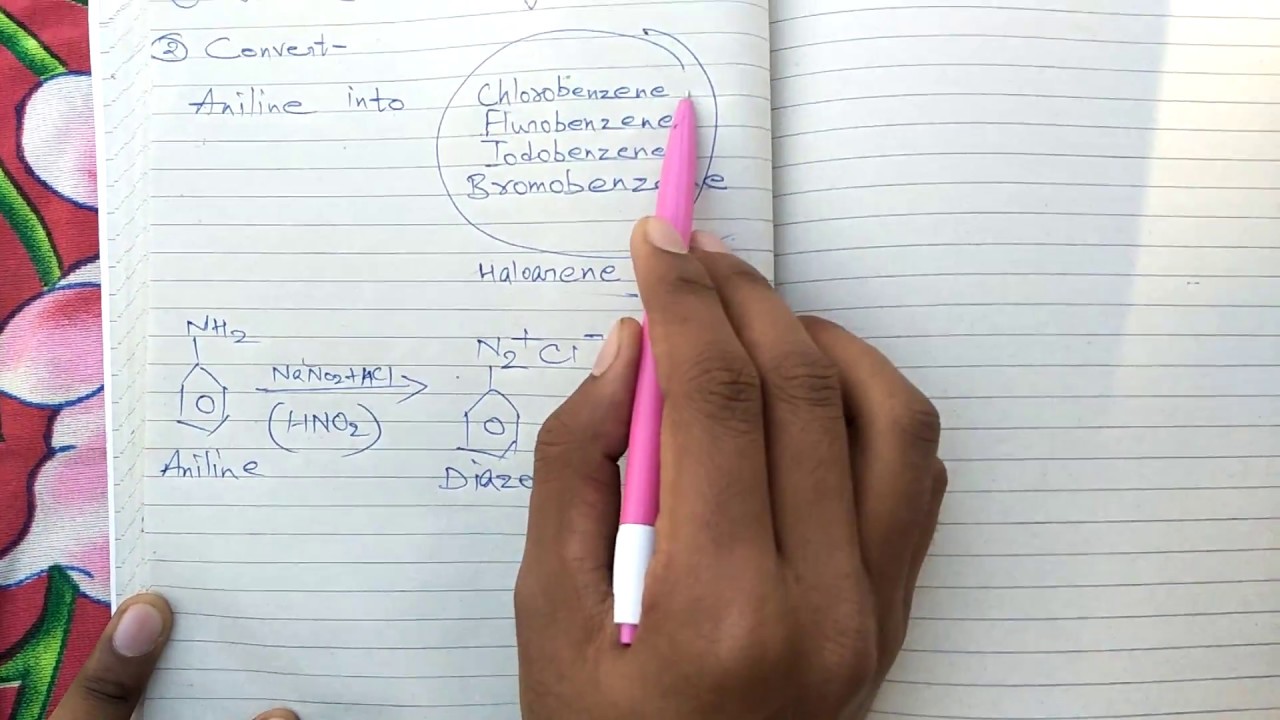 ② Convert-
Aniline into
Chlorobenzene
Flurobenzene
Iodobenzene
Bromobenz
Haloarene
NH2
NaNO2+HCl
(HNO2)
Aniline
N2+Cl-